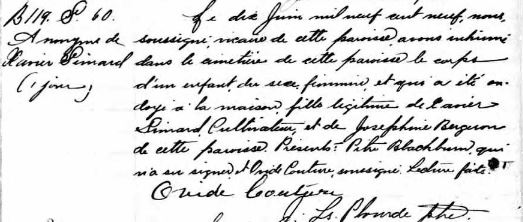 B 119. S. 60.
Anonyme de
Xavier Simard
(1 jour)
Le dix Juin mil neuf cent neuf, nous,
soussigné, vicaire de cette paroisse, avons inhumé
dans le cimetière de cette paroisse le corps
d'un enfant, du sexe féminin, et qui a été on-
doyé à la maison, fille légitime de Xavier
Simard, Cultivateur, et de Josephine Bergeron
de cette paroisse. Présents: Pitre Blackburn, qui
n'a su signer, et Ovide Couture, soussigné. Lecture faite.
Ovide Couture
Ls. Plourde ptre.